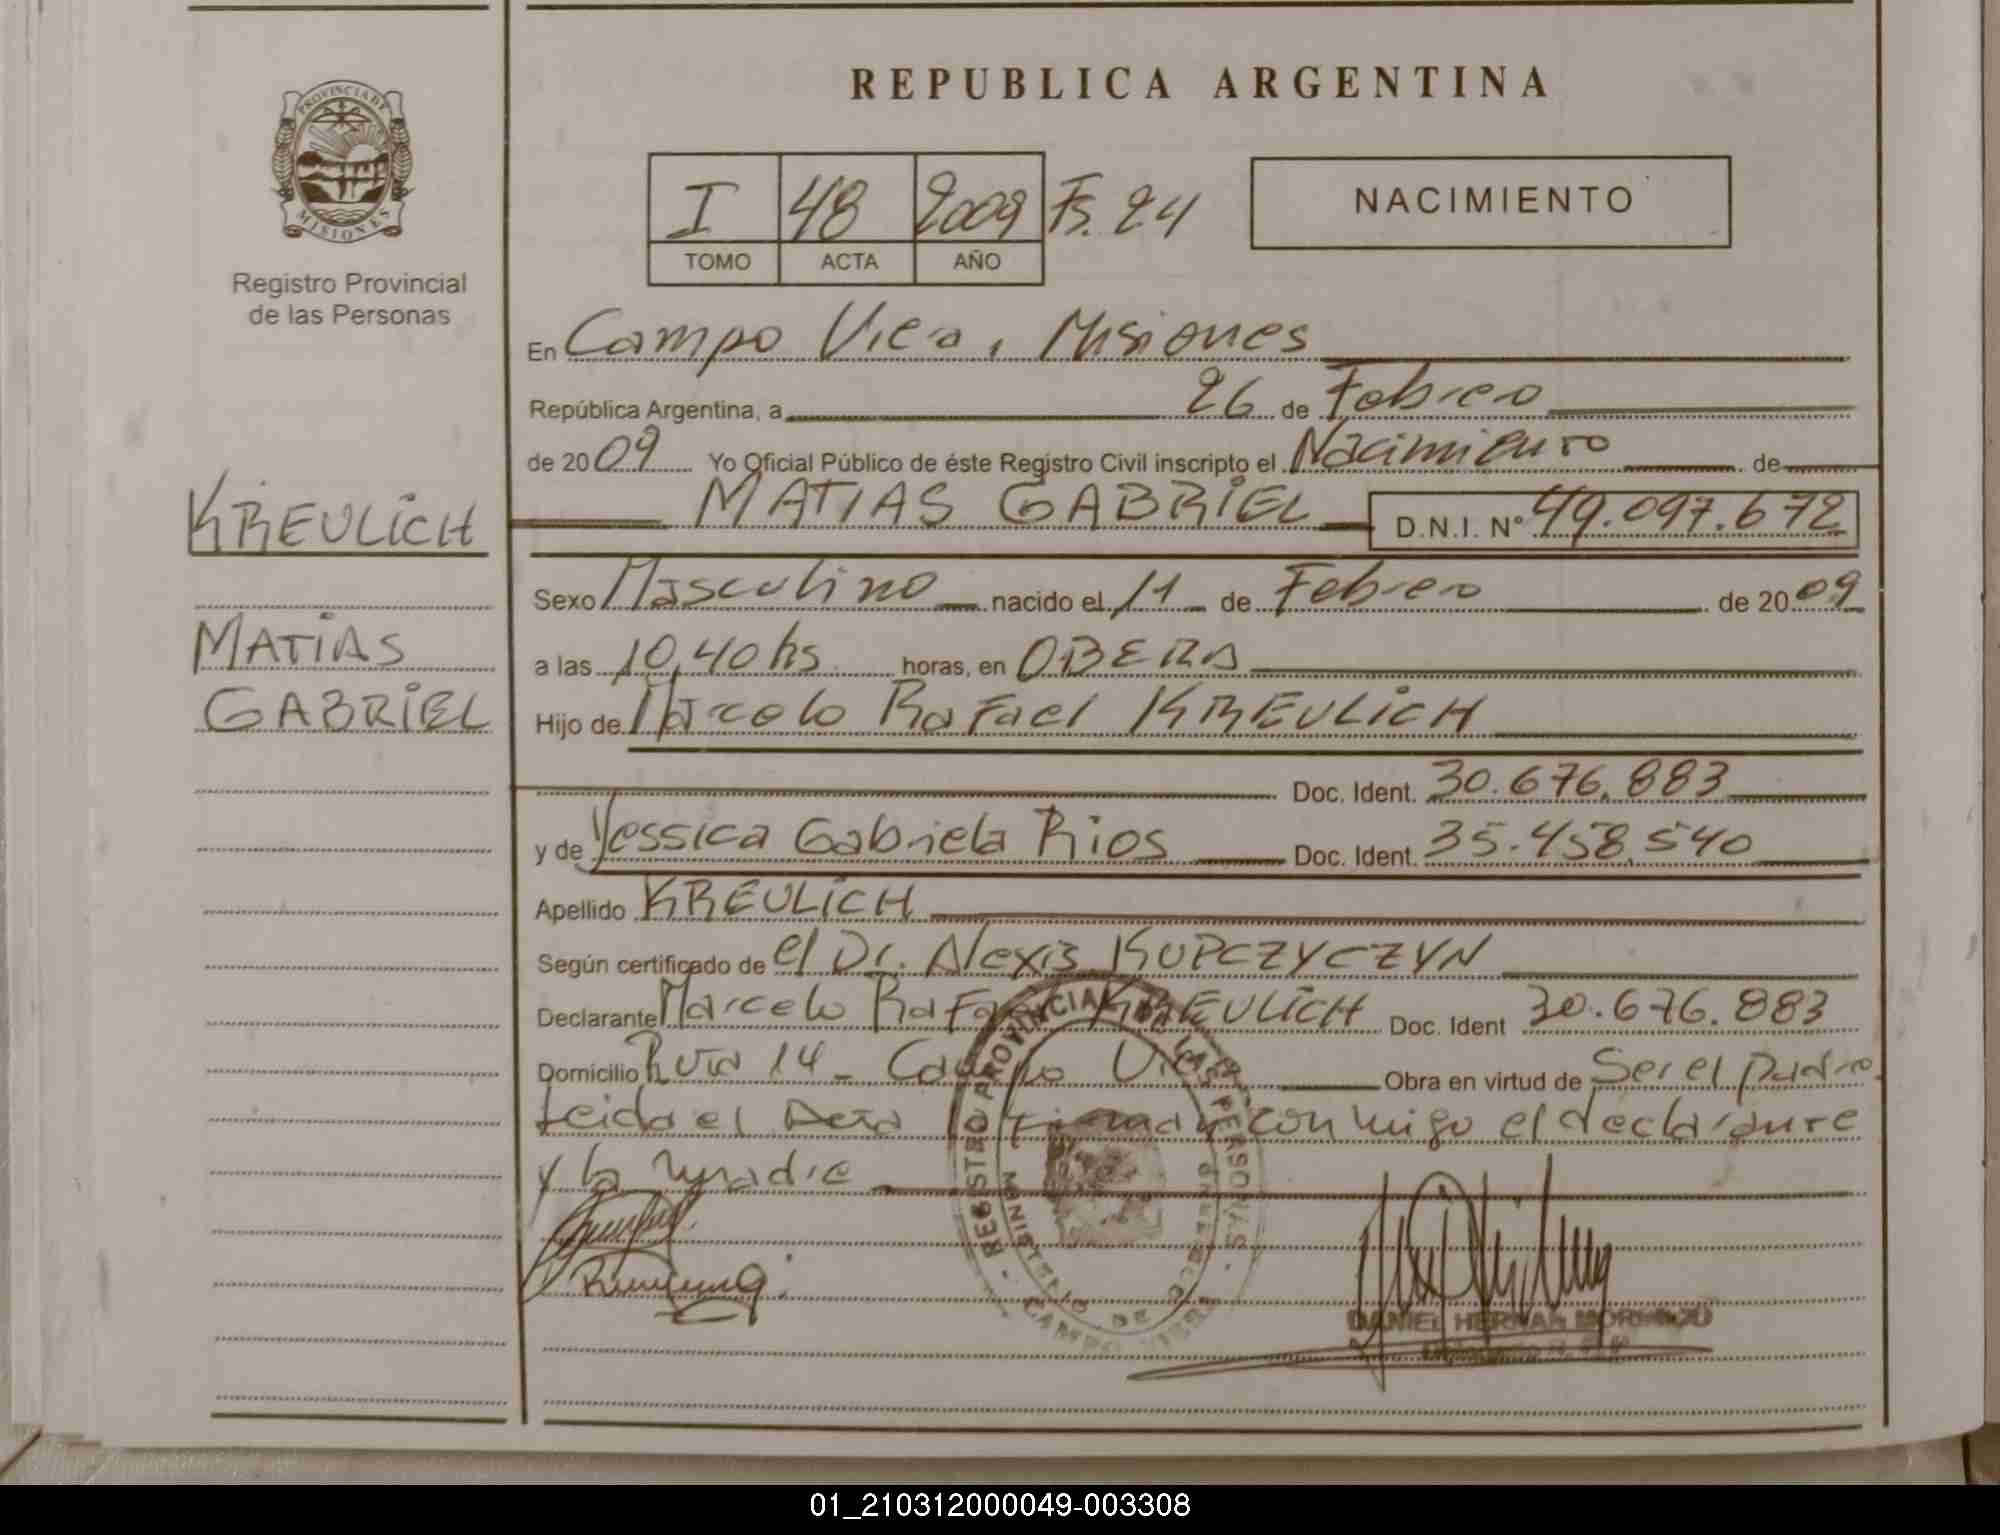 REPUBLICA ARGENTINA
PROVINCIA DE
MISIONES
Registro Provincial
de las Personas
I 48 2009 Fs. 24
TOMO ACTA AÑO
NACIMIENTO
En Campo Viera, Misiones
República Argentina, a 26 de Febrero
de 2009 Yo Oficial Público de éste Registro Civil inscripto el Nacimiento de
KREULICH
MATIAS GABRIEL D.N.I. N° 49.097.672
Sexo Masculino nacido el 11 de Febrero de 2009
MATIAS
a las 10,40 hs horas, en OBERA
GABRIEL
Hijo de Marcelo Rafael KREULICH
Doc. Ident. 30.676.883
y de Yessica Gabriela Rios Doc. Ident. 35.458.540
Apellido KREULICH
Según certificado de el Dr. Alexis KUPCZYCZYN
Declarante Marcelo Rafael KREULICH Doc. Ident 30.676.883
Domicilio Ruta 14 - Campo Viera Obra en virtud de Ser el padre
Leida el Acta firman conmigo el declarante
y la madre
REGISTRO PROVINCIAL DE LAS PERSONAS
MINISTERIO DE GOBIERNO
CAMPO VIERA
DANIEL HERNAN
01_210312000049-003308